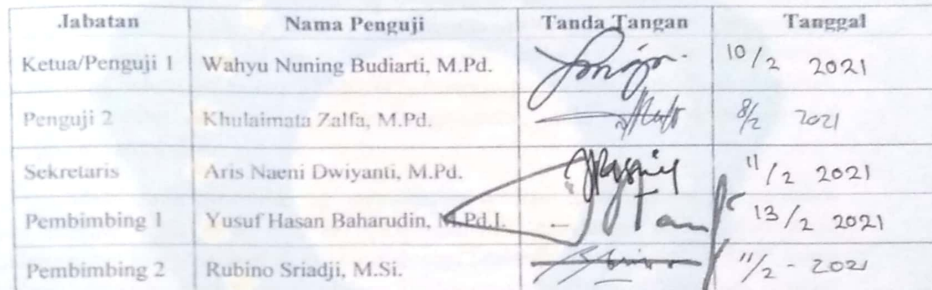 Jabatan Nama Penguji Tanda Tangan Tanggal
Ketua/Penguji 1 Wahyu Nuning Budiarti, M.Pd. 10/2 2021
Penguji 2 Khulaimata Zalfa, M.Pd. 8/2 2021
Sekretaris Aris Naeni Dwiyanti, M.Pd. 11/2 2021
Pembimbing 1 Yusuf Hasan Baharudin, M.Pd.I. 13/2 2021
Pembimbing 2 Rubino Sriadji, M.Si. 11/2 - 2021